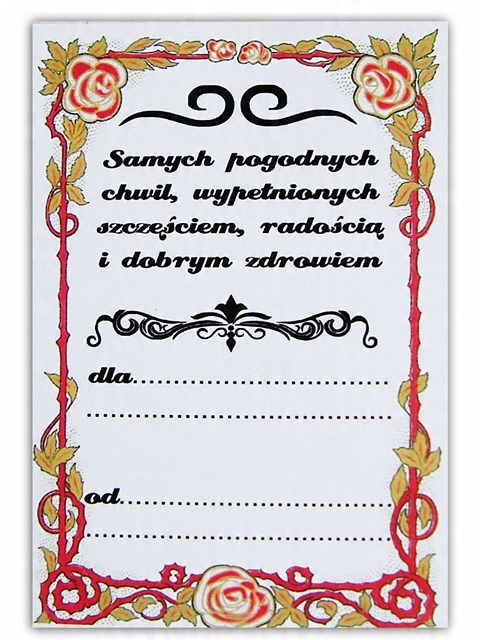 Samych pogodnych
chwil, wypełnionych
szczęściem, radością
i dobrym zdrowiem
dla..............................
.....................................
od................................
.....................................